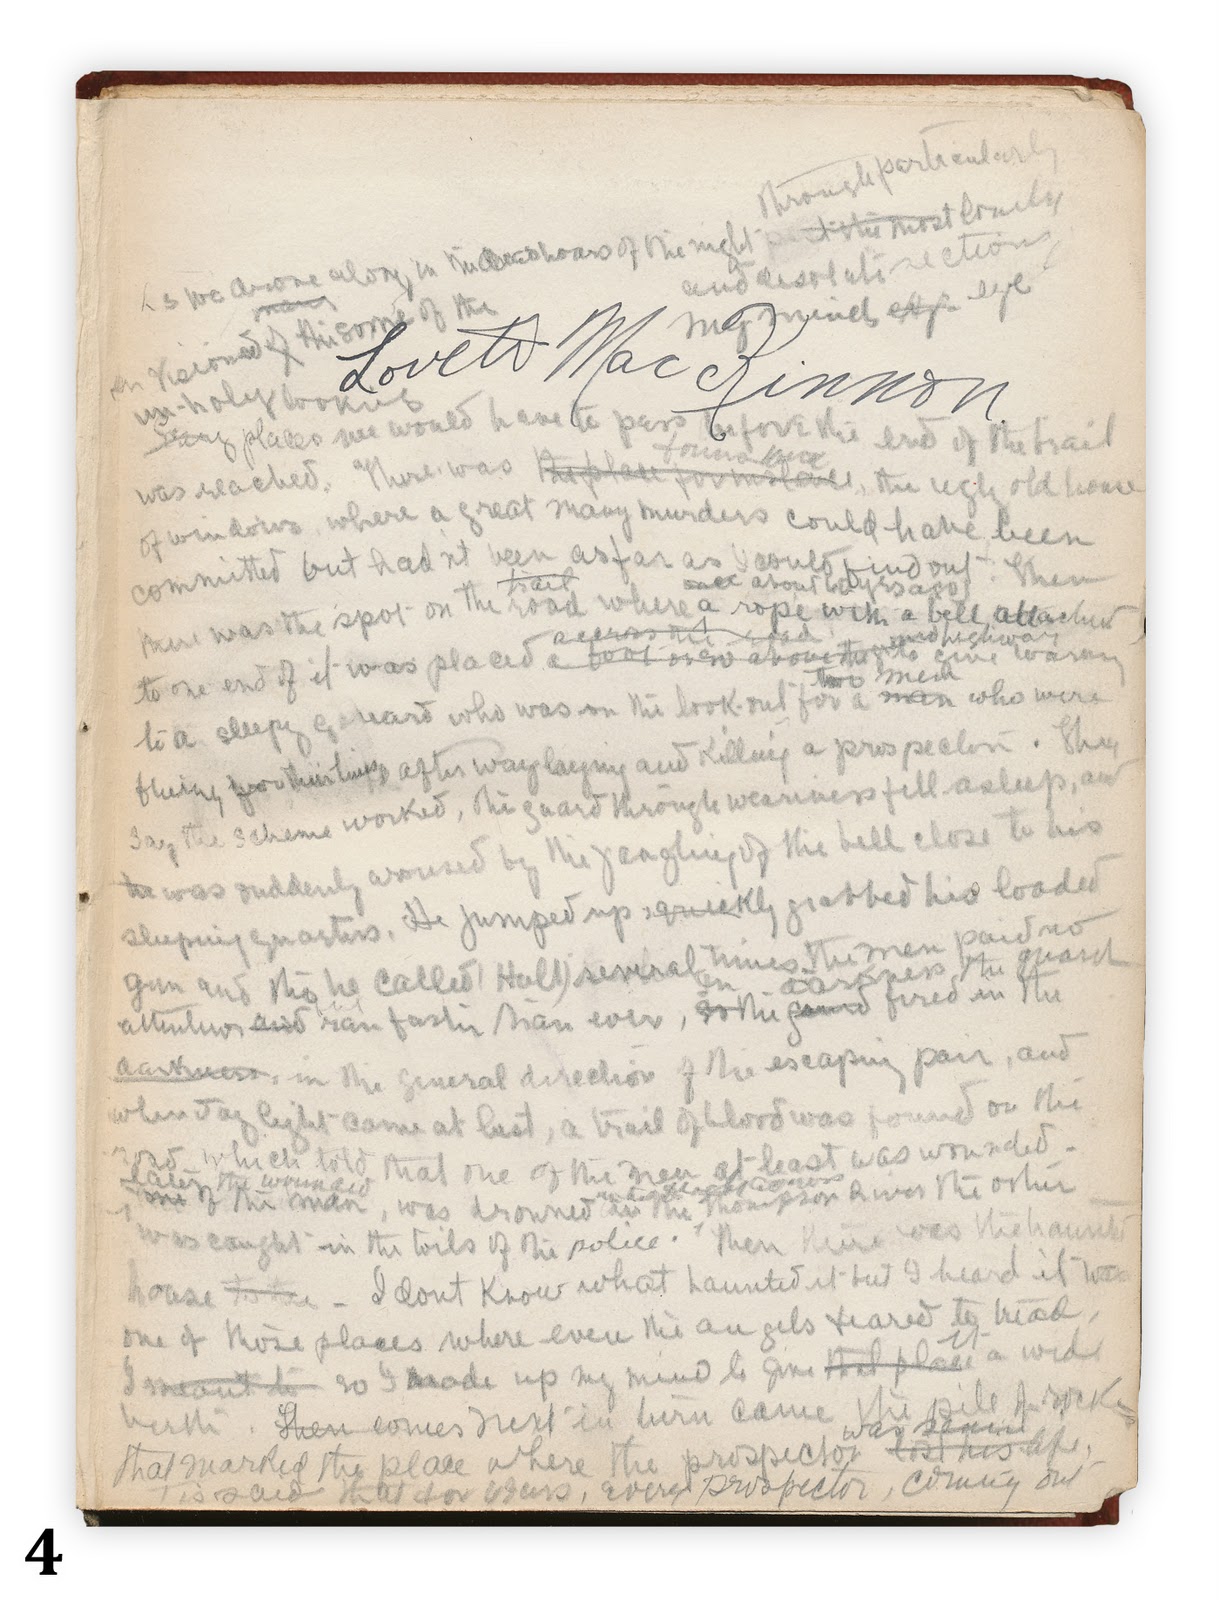 through particularly
As we drove along, in the hours of the night past the most lonely
and desolate sections
many my mind's eye eye
I visioned of the some of the
Lovett MacKinnon
un-holy looking
places we would have to pass before the end of the trail
was reached. There was the place for instance, the ugly old house
of windows, where a great many murders could have been
committed but hadn't been as far as I could find out. Then
trail once about years ago
there was the spot on the road where a rope with a bell attached
across the road and highway
to one end of it was placed a foot or so above the to give warning
two men
to a sleepy guard who was on the look-out for a man who were
fleeing for their lives after waylaying and killing a prospector. They
say the scheme worked, the guard through weariness fell asleep, and
he was suddenly aroused by the jangling of the bell close to his
sleeping quarters. He jumped up quickly grabbed his loaded
gun and tho he called (Halt) several times, the men paid no
in darkness the guard
attention and ran faster than ever, so the guard fired in the
darkness, in the general direction of the escaping pair, and
when day light came at last, a trail of blood was found on the
road which told that one of the men at least was wounded -
later the wounded
one of the man, was drowned in the Thompson River the other
was caught in the toils of the police. Then there was the haunted
house to the - I dont know what haunted it but I heard it was
one of those places where even the angels feared to tread,
it
I meant to so I made up my mind to give that place a wide
berth. Then comes next in turn came the pile of rocks
was
that marked the place where the prospector lost his life.
Tis said that for years, every prospector, coming out
4